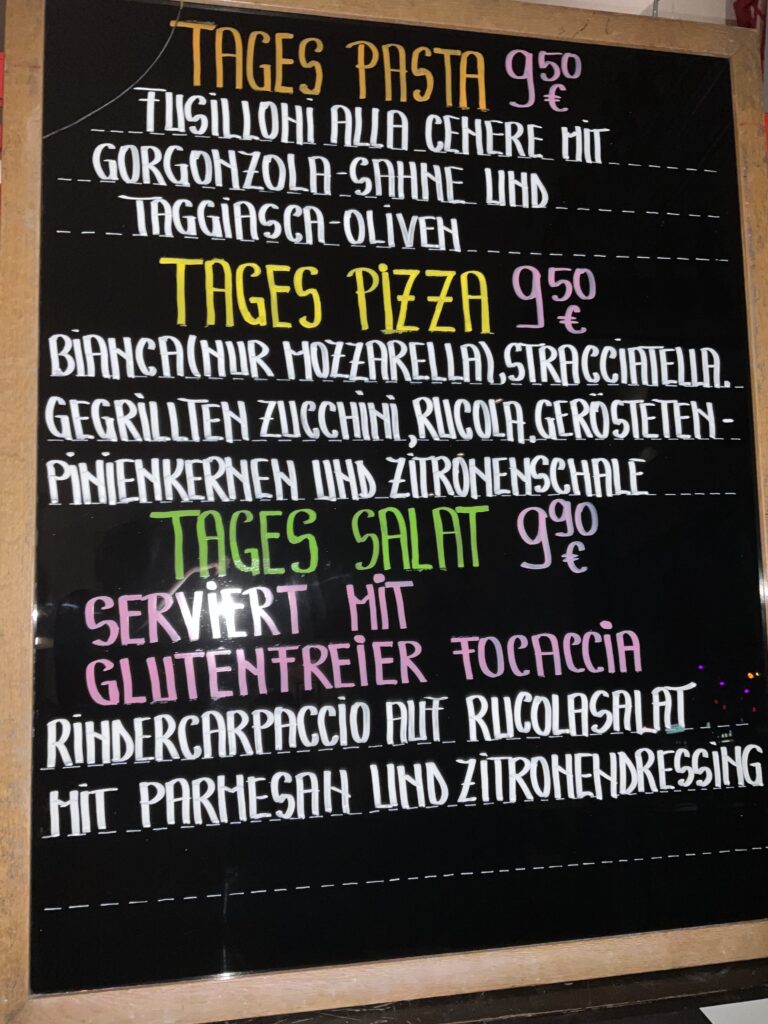 TAGES PASTA 9 50 €
FUSILLONI ALLA CENERE MIT
GORGONZOLA-SAHNE UND
TAGGIASCA-OLIVEN
TAGES PIZZA 9 50 €
BIANCA(NUR MOZZARELLA),STRACCIATELLA,
GEGRILLTEN ZUCCHINI,RUCOLA,GERÖSTETEN-
PINIENKERNEN UND ZITRONENSCHALE
TAGES SALAT 9 90 €
SERVIERT MIT
GLUTENFREIER FOCACCIA
RINDERCARPACCIO AUF RUCOLASALAT
MIT PARMESAN UND ZITRONENDRESSING